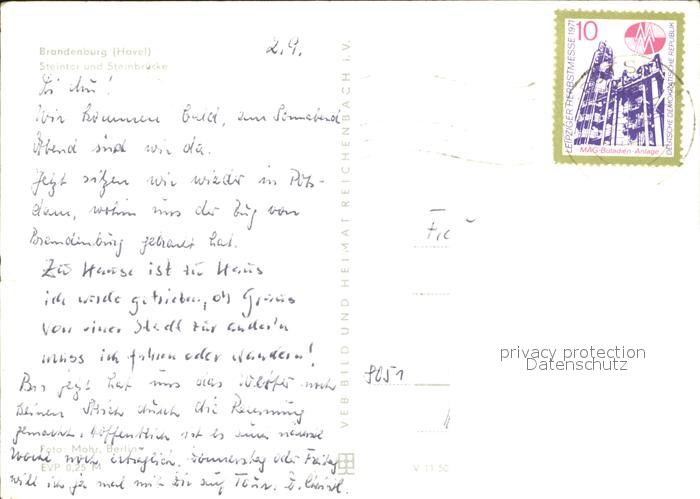 Brandenburg (Havel)
Steintor und Steinbrücke
2.9.
Wir kommen bald, am Sonnabend
Abend sind wir da.
Jetzt sitzen wir wieder in Pots-
dam, wohin uns der Zug von
Brandenburg gebracht hat.
Zu Hause ist zu Haus
ich werde getrieben, oh Graus
von einer Stadt zur ander'n
muss ich fahren oder wandern!
Bis jetzt hat uns das Wetter noch
keinen Strich durch die Rechnung
gemacht. Hoffentlich ist es auch nächste
Woche noch erträglich. Donnerstag oder Freitag
will ich ja mal mit Dir auf Tour.
Foto: Mohr, Berlin
EVP 0,25 M
VEB BILD UND HEIMAT REICHENBACH I.V.
V 11 50
8051
10
LEIPZIGER HERBSTMESSE 1971
DEUTSCHE DEMOKRATISCHE REPUBLIK
MAG-Butadien-Anlage
privacy protection
Datenschutz